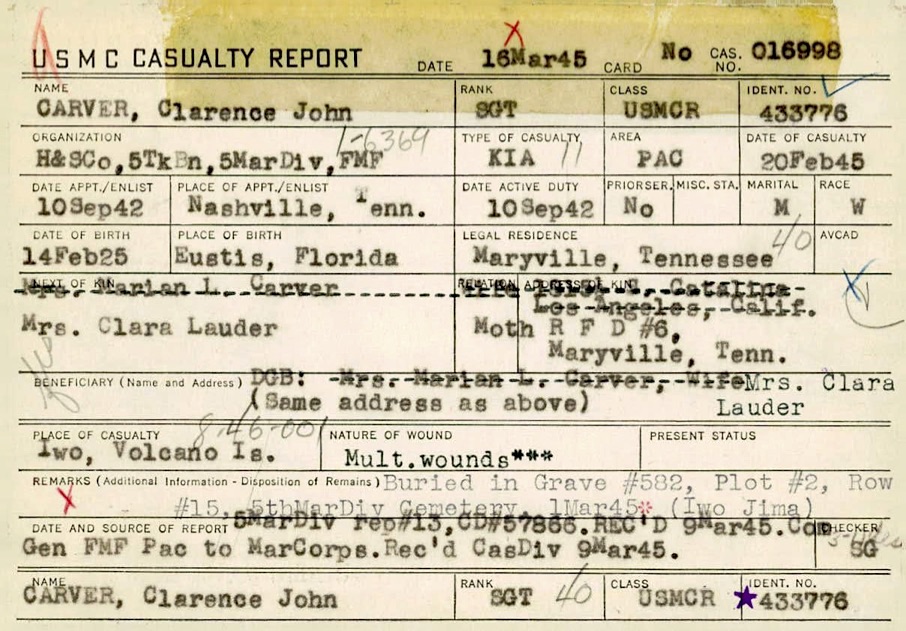 USMC CASUALTY REPORT DATE 16Mar45 CARD No CAS. NO. 016998
NAME RANK CLASS IDENT. NO.
CARVER, Clarence John SGT USMCR 433776
ORGANIZATION 1-6369 TYPE OF CASUALTY AREA DATE OF CASUALTY
H&SCo,5TkBn,5MarDiv,FMF KIA 11 PAC 20Feb45
DATE APPT./ENLIST PLACE OF APPT./ENLIST DATE ACTIVE DUTY PRIORSER. MISC. STA. MARITAL RACE
10Sep42 Nashville, Tenn. 10Sep42 No M W
DATE OF BIRTH PLACE OF BIRTH LEGAL RESIDENCE 40 AVCAD
14Feb25 Eustis, Florida Maryville, Tennessee
NEXT OF KIN RELATION ADDRESS OF KIN
Mrs. Marian L. Carver Wife Catalina
Los Angeles, Calif.
Mrs. Clara Lauder Moth R F D #6,
Maryville, Tenn.
BENEFICIARY (Name and Address) DGB: Mrs. Marian L. Carver, Wife Mrs. Clara
(Same address as above) Lauder
PLACE OF CASUALTY 8-46-001 NATURE OF WOUND PRESENT STATUS
Iwo, Volcano Is. Mult.wounds***
REMARKS (Additional Information - Disposition of Remains) Buried in Grave #582, Plot #2, Row
#15, 5thMarDiv Cemetery, 1Mar45* (Iwo Jima)
DATE AND SOURCE OF REPORT 5MarDiv rep#13,CD#57866.REC'D 9Mar45.Com CHECKER
Gen FMF Pac to MarCorps.Rec'd CasDiv 9Mar45. SG
NAME RANK CLASS IDENT. NO.
CARVER, Clarence John SGT 40 USMCR 433776